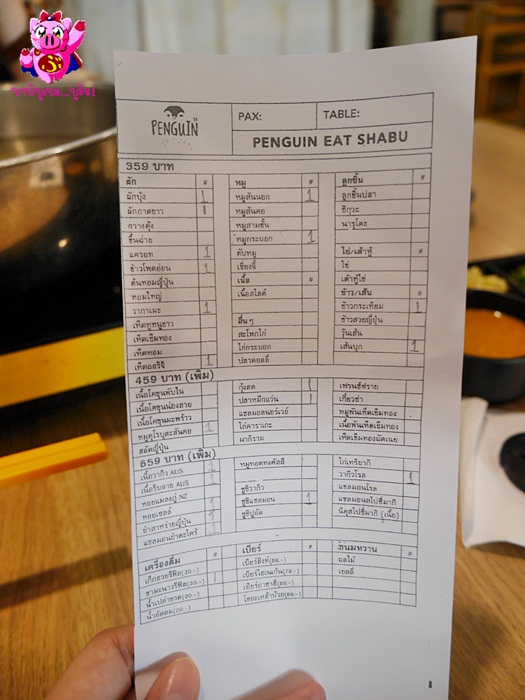 PENGUIN
PAX:
TABLE:
PENGUIN EAT SHABU
359 บาท
ผัก #
ผักบุ้ง 1
ผักกาดขาว 1
กวางตุ้ง
ขึ้นฉ่าย
แครอท 1
ข้าวโพดอ่อน 1
ต้นหอมญี่ปุ่น
หอมใหญ่
วากาเมะ 1
เห็ดหูหนูขาว
เห็ดเข็มทอง
เห็ดหอม
เห็ดออริจิ 1
หมู #
หมูสันนอก 1
หมูสันคอ
หมูสามชั้น
หมูกระบอก 1
ตับหมู
เซี่ยงจี๊
เนื้อ #
เนื้อสไลด์
อื่นๆ
สะโพกไก่
ไก่กระบอก
ปลาดอลลี่
ลูกชิ้น #
ลูกชิ้นปลา
ชิกูวะ
นารูโตะ
ไข่/เต้าหู้ #
ไข่
เต้าหู้ไข่
ข้าว/เส้น #
ข้าวกระเทียม 1
ข้าวสวยญี่ปุ่น
วุ้นเส้น
เส้นบุก 1
459 บาท (เพิ่ม)
เนื้อโคขุนพับใน
เนื้อโคขุนน่องลาย
เนื้อโคขุนมะพร้าว
หมูคุโรบุตะสันคอ 1
สลัดญี่ปุ่น
กุ้งสด 1
ปลาหมึกแว่น 1
แซลมอนนอร์เวย์
ไก่คาราเกะ
มาก๊วม
เฟรนช์ฟราย
เกี๊ยวซ่า
หมูพันเห็ดเข็มทอง
เนื้อพันเห็ดเข็มทอง
เห็ดเข็มทองผัดเนย
659 บาท (เพิ่ม)
เนื้อวากิว AUS 1
เนื้อริบอาย AUS 1
หอยแมลงภู่ NZ 1
หอยเชลล์ 1
ยำสาหร่ายญี่ปุ่น 1
แซลมอนยำตะไคร้ 1
หมูทอดทงคัตสึ
ซูชิวากิว
ซูชิแซลมอน 1
ซูชิปูอัด
ไก่เทริยากิ
วากิวโรล 1
แซลมอนโรล
แซลมอนสไปซี่มากิ
นิคุสไปซี่มากิ (เนื้อ)
เครื่องดื่ม #
เก๊กฮวยรีฟิล(39.-)
ชามะนาวรีฟิล(39.-) 1
น้ำเปล่าขวด(20.-)
น้ำอัดลม(20.-)
เบียร์ #
ของหวาน #
ผลไม้
เยลลี่